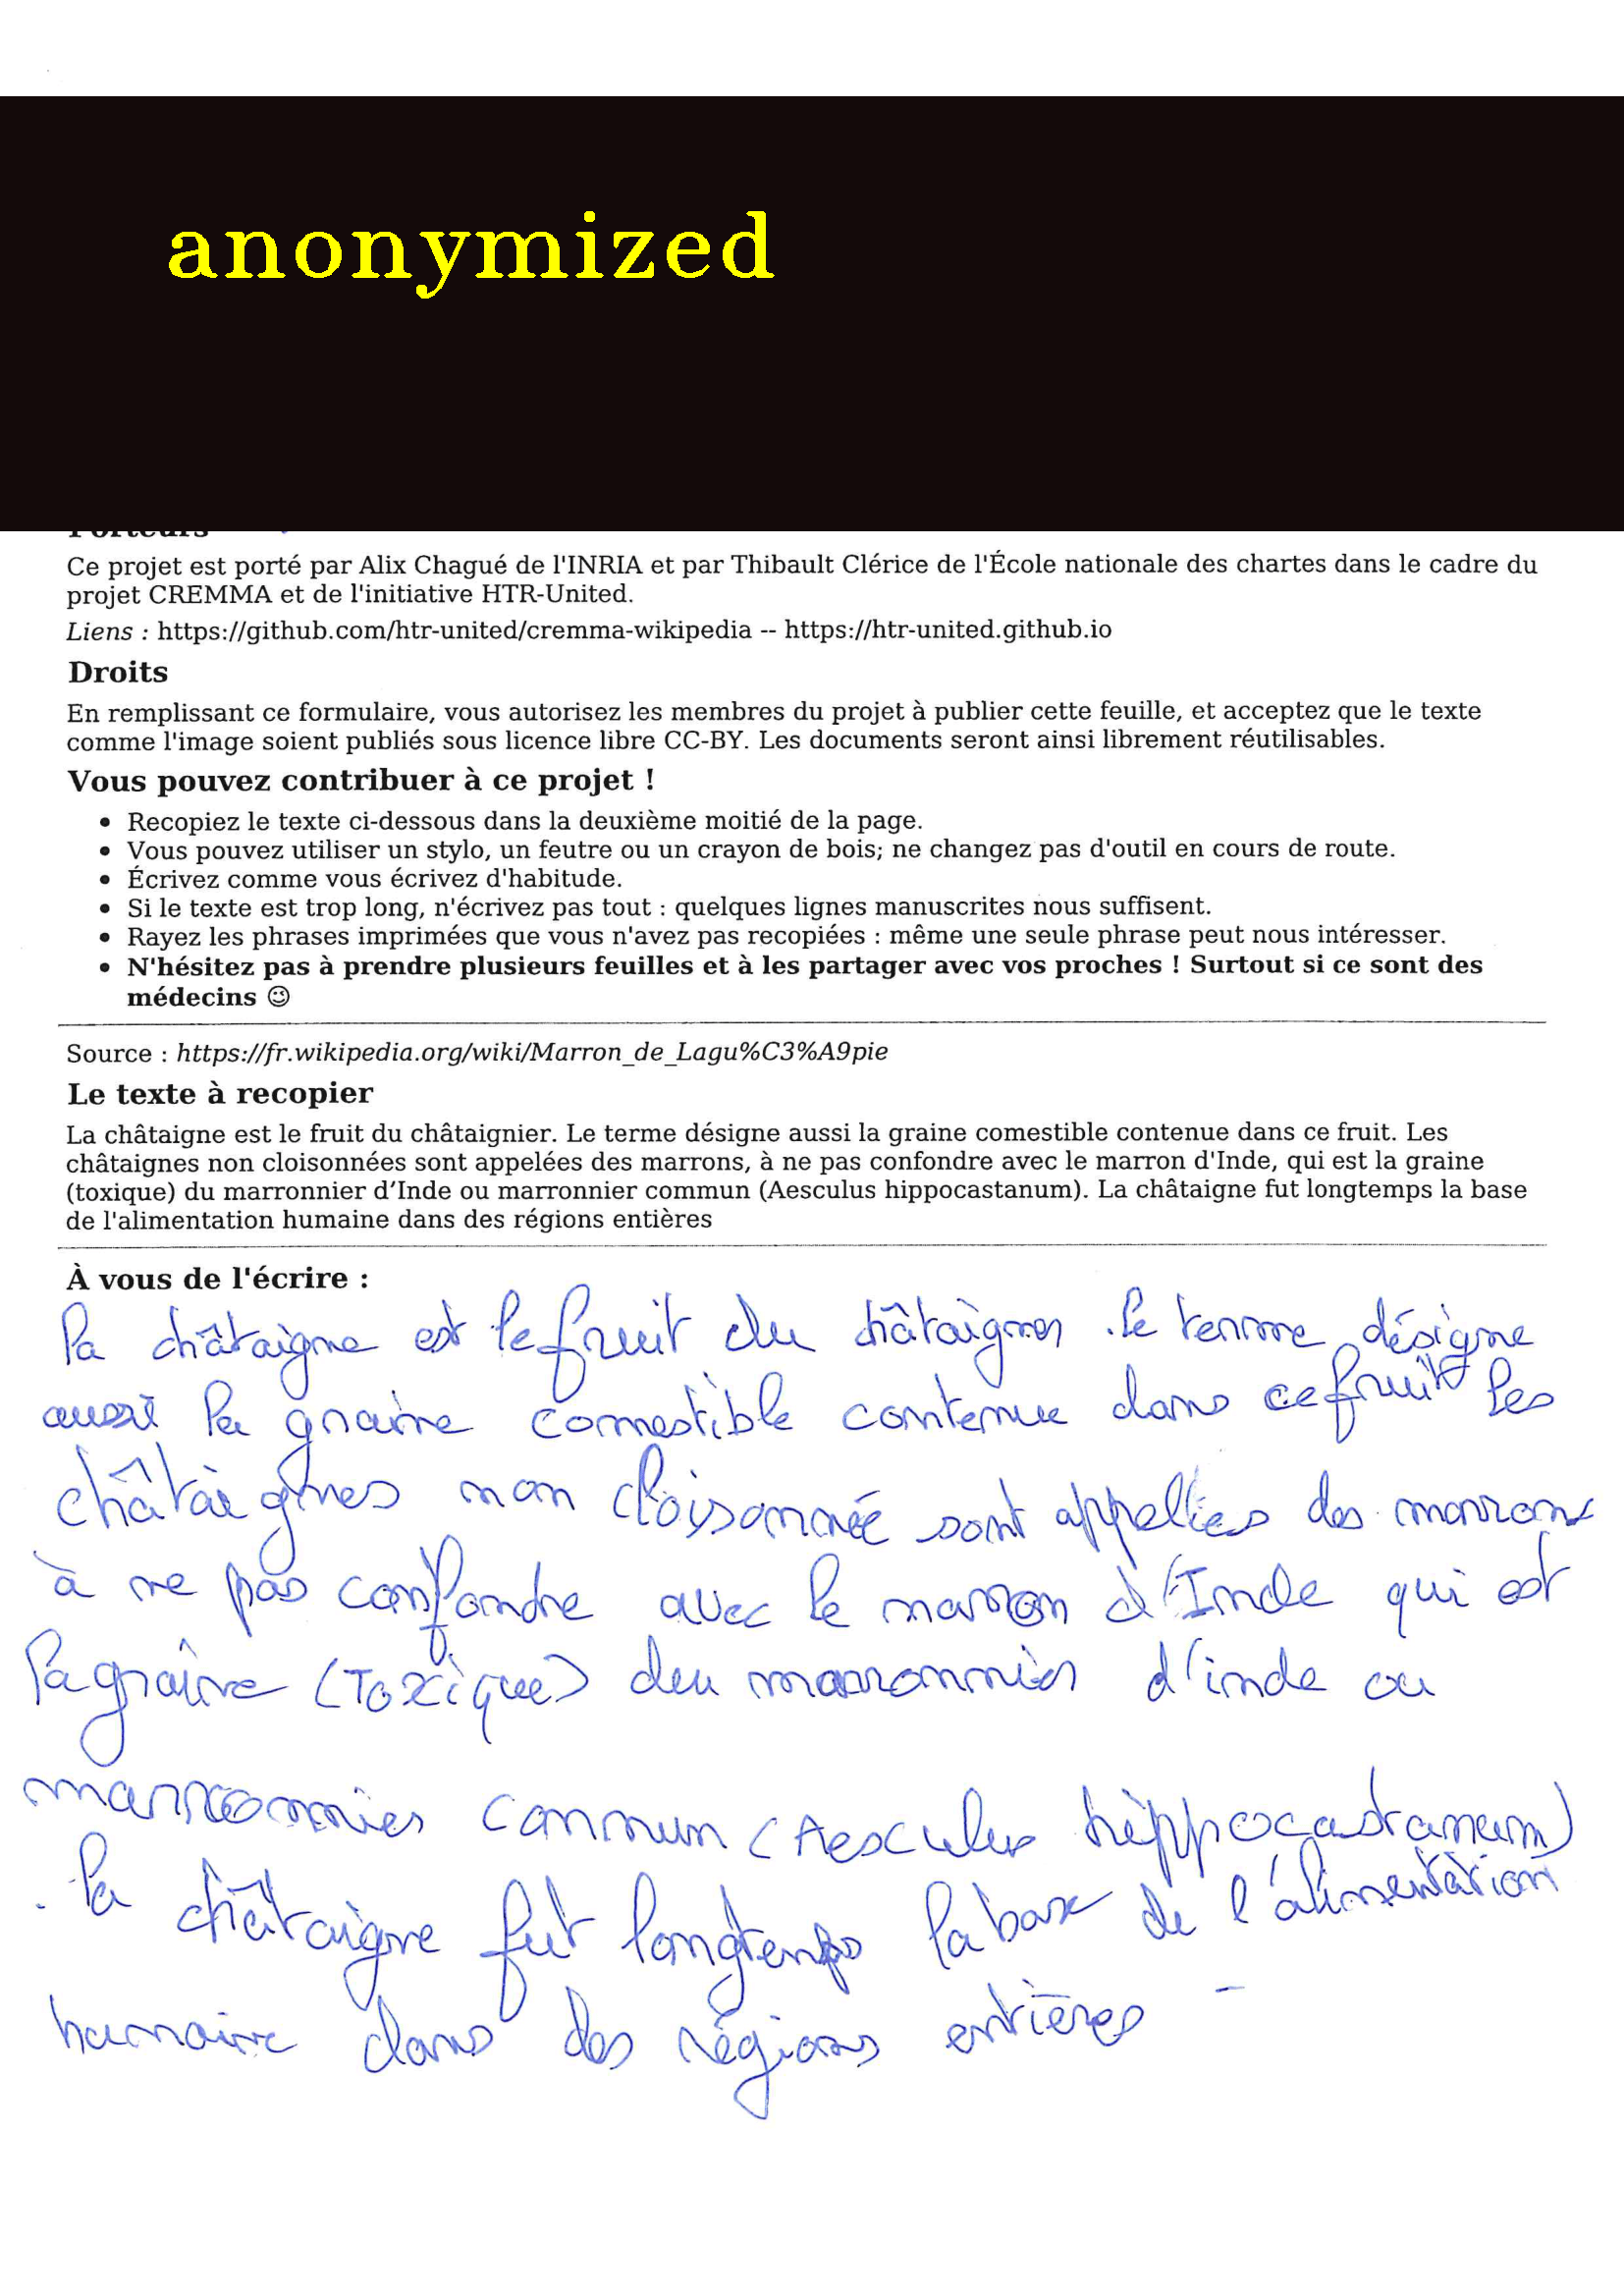 anonymized
Porteurs
Ce projet est porté par Alix Chagué de l'INRIA et par Thibault Clérice de l'École nationale des chartes dans le cadre du
projet CREMMA et de l'initiative HTR-United.
Liens : https://github.com/htr-united/cremma-wikipedia -- https://htr-united.github.io
Droits
En remplissant ce formulaire, vous autorisez les membres du projet à publier cette feuille, et acceptez que le texte
comme l'image soient publiés sous licence libre CC-BY. Les documents seront ainsi librement réutilisables.
Vous pouvez contribuer à ce projet !
• Recopiez le texte ci-dessous dans la deuxième moitié de la page.
• Vous pouvez utiliser un stylo, un feutre ou un crayon de bois; ne changez pas d'outil en cours de route.
• Écrivez comme vous écrivez d'habitude.
• Si le texte est trop long, n'écrivez pas tout : quelques lignes manuscrites nous suffisent.
• Rayez les phrases imprimées que vous n'avez pas recopiées : même une seule phrase peut nous intéresser.
• N'hésitez pas à prendre plusieurs feuilles et à les partager avec vos proches ! Surtout si ce sont des
médecins 😉
Source : https://fr.wikipedia.org/wiki/Marron_de_Lagu%C3%A9pie
Le texte à recopier
La châtaigne est le fruit du châtaignier. Le terme désigne aussi la graine comestible contenue dans ce fruit. Les
châtaignes non cloisonnées sont appelées des marrons, à ne pas confondre avec le marron d'Inde, qui est la graine
(toxique) du marronnier d’Inde ou marronnier commun (Aesculus hippocastanum). La châtaigne fut longtemps la base
de l'alimentation humaine dans des régions entières
À vous de l'écrire :
la châtaigne est le fruit du châtaigner . le terme désigne
aussi la graine comestible contenue dans ce fruit les
châtaignes non cloisonnée sont appellées des marrons
à ne pas confondre avec le marron d'Inde qui est
la graine (Toxique) du marronnier d'inde ou
marronnier commun (Aesculus hippocastanum)
. la châtaigne fut longtemps la base de l'alimentation
humaine dans des régions entières -